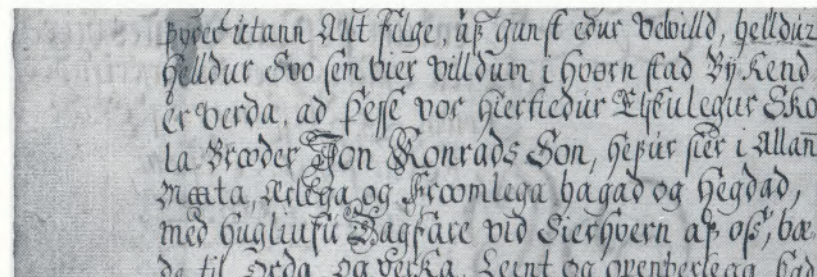 þyder utann Allt filge, af gunst edur velvilld, helldur
helldur Svo sem vier villdum i hvorn stad Vyðkend
er verda, ad þesse vor Hiertkiedur Elskulegur Sko
la Brooder Jon Konrads Son, hefur sier i Allañ
Maata, Ærlega og Froomlega hagad og Hegdad,
med hugliufu Dagfare vid Sierhvern af oss, bæ
de til Orda og Verka, Leint og openberlega